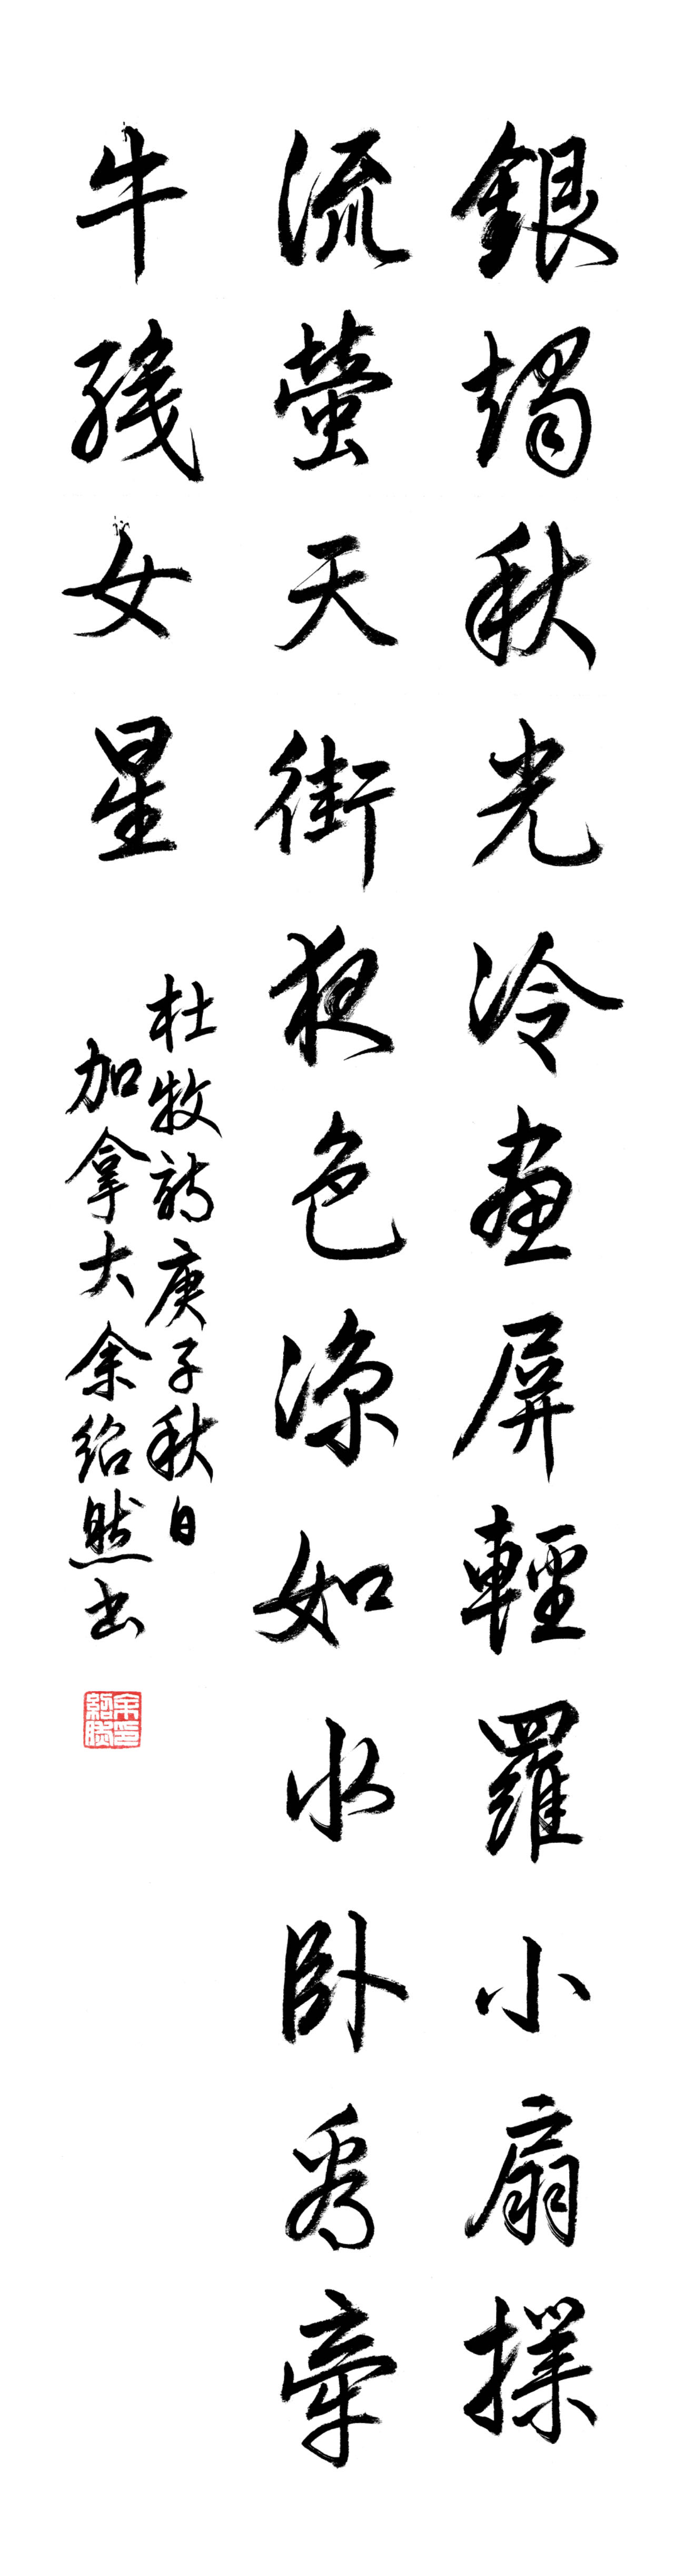 銀燭秋光冷畫屏輕羅小扇撲
流螢天街夜色涼如水卧看牽
牛織女星
杜牧詩庚子秋日
加拿大余紹然書
余印紹然